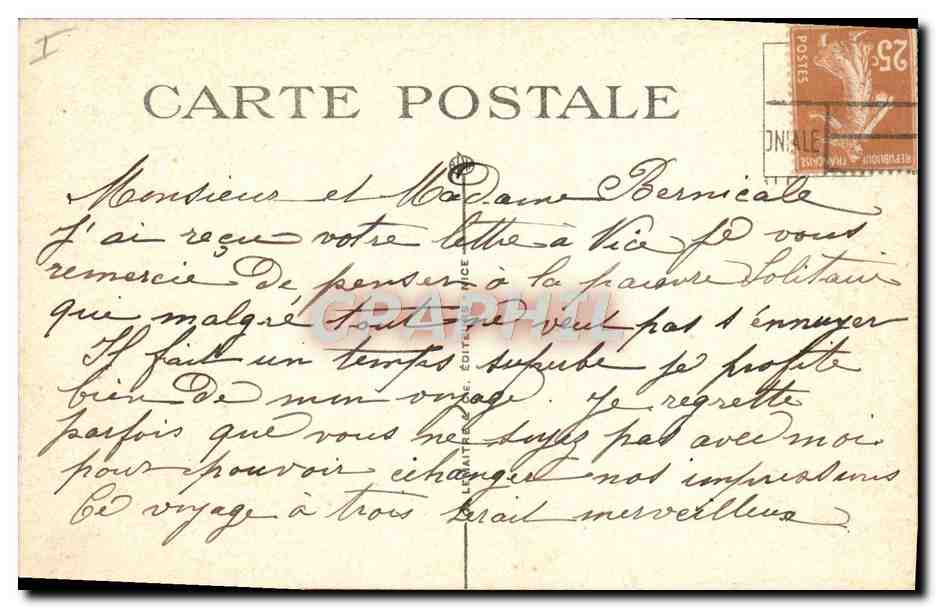 I
CARTE POSTALE
25c
POSTES
REPUBLIQUE FRANÇAISE
ONIALE
Monsieur et Madame Bernicale
J'ai reçu votre lettre à Nice Je vous
remercie De penser à la pauvre Solitaire
que malgré tout ne veut pas s'ennuyer
Il fait un temps superbe je profite
bien de mon voyage. Je regrette
parfois que vous ne soyez pas avec moi
pour pouvoir échanger nos impressions
Ce voyage à trois serait merveilleux
LEMAITRE & CIE, EDITEURS NICE
CPAPHIL